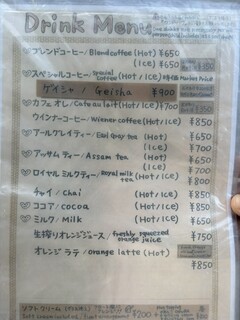 Drink Menu
♡ ブレンドコーヒー/Blend coffee (Hot) ¥650
(Ice) ¥650
♡ スペシャルコーヒー/Special coffee (Hot/Ice) 時価 Market Price
ゲイシャ / Geisha ¥900
♡ カフェオレ/Cafe au lait (Hot/Ice) ¥700
ウインナーコーヒー/Winner coffee (Hot/Ice) ¥850
♡ アールグレイティー/Earl Gray tea (Hot) ¥650
(Ice) ¥700
♡ アッサムティー/Assam tea (Hot) ¥650
(Ice) ¥700
♡ ロイヤルミルクティー/Royal milk tea (Hot/Ice) ¥800
チャイ/Chai (Hot/Ice) ¥850
♡ ココア/cocoa (Hot/Ice) ¥850
♡ ミルク/Milk (Hot/Ice) ¥650
生搾りオレンジジュース/freshly squeezed orange juice ¥750
オレンジラテ/orange latte (Hot)
¥850
ソフトクリーム
¥200